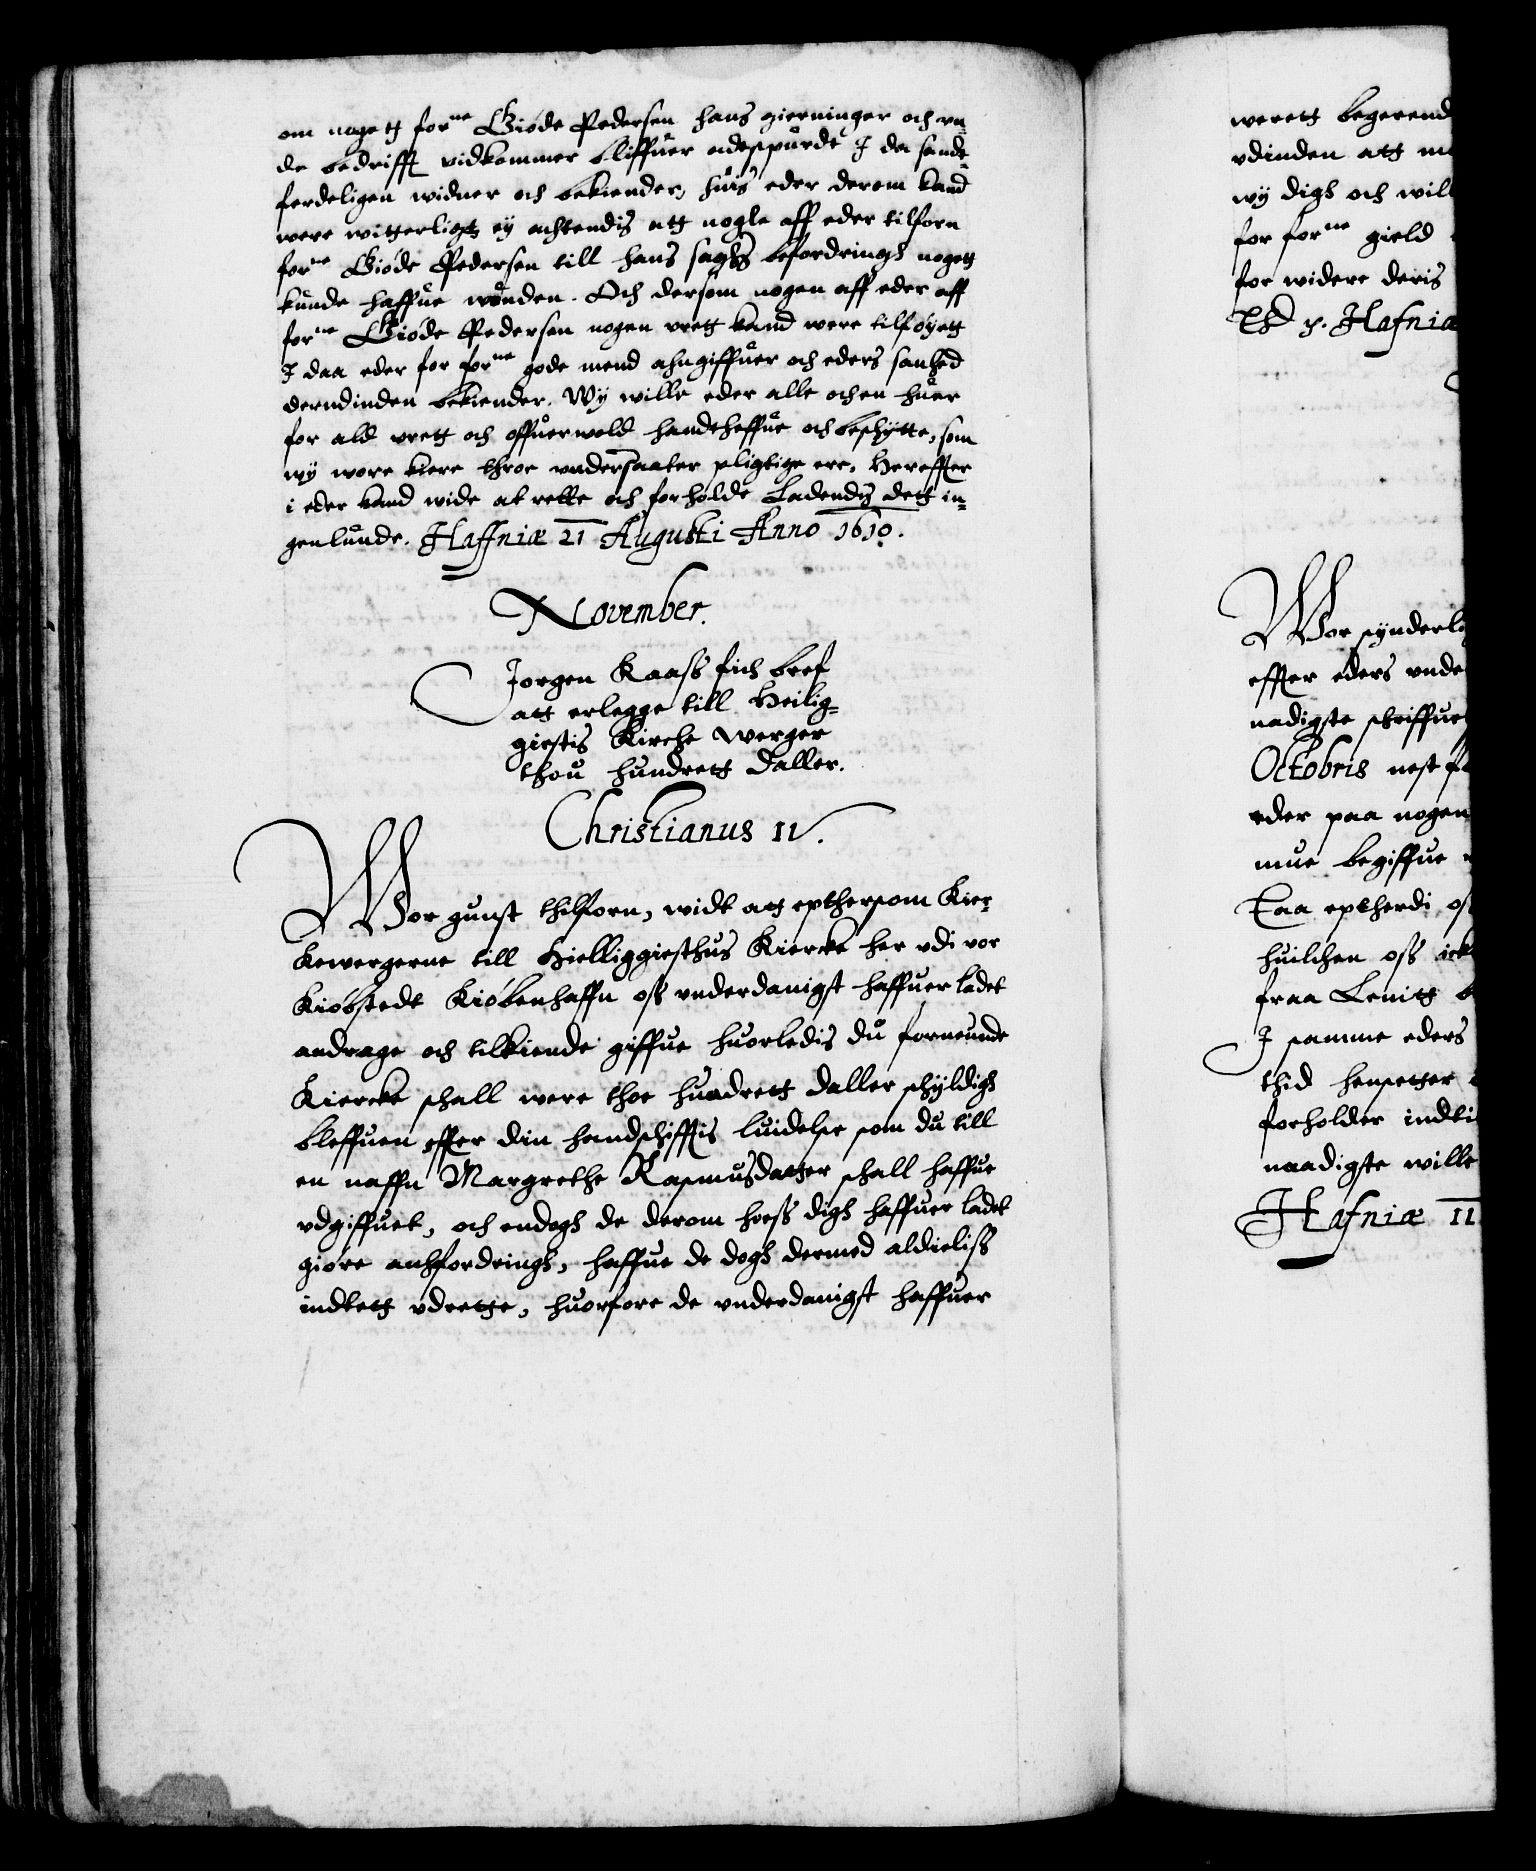 om nogett forne Giøde Pedersen hans gierninger och vn¬
de bedrifft vidkommer bliffuer adspurde I da sande¬
ferdeligen widner och bekiender, huis eder derom kand
were witterligt ey achtendis att nogle aff eder tilforn
forne Giøde Pedersen till hans saghs befordringh nogett
kunde haffue wonden. Och dersom nogen aff eder aff
forne Giøde Pedersen nogen vrett kand were tilføyett
I daa eder for forne gode mend ahngiffuer och eders sanhed
derudinden bekiender. Wy wille eder alle och en huer
for ald vrett och offuerwold handtheffue och beschytte, som
wy wore kiere throe vndersaatter pligtige ere. Hereffter
i eder kand wide at rette och forholde Ladendis dett in¬
genlunde. Haffniæ 21 Augusti Anno 1610.
November.
Jorgen Kaass fich bref
att erlegge till Heilig¬
giestis Kirche werger
thou hundrett Daller.
Christianus IV.
Wor gunst thilforn, widt att epthersom Kier¬
kewergerne till Hielliggiesthus Kiercke her vdi vor
Kiøbstedt Kiøbenhaffn oss vnderdanigst haffuer ladet
andrage och tilkiende giffue huorledis du forneunde
Kiercke schall were thoe hundrett daller schyldigh
bleffuen effter din handschifftis luidelse som du till
en naffn Margrethe Rasmusdatter schall haffue
vdgiffuet, och endogh de derom hoess digh haffuer ladet
giøre anhfordringh, haffue de dogh dermed aldieliss
indtett vdrette, huorfore de vnderdanigst haffuer
werett begerend
vdinden att m
wy digh och wil
for forne gield
for widere deris
Hafniæ
Wor synderli
effter eders vnde
nadigste schriffue
Octobris nest fo
eder paa nogen
mue begiffue
Daa eptherdi os
huilchen oss ick
fraa Lenitt b
I samme eders
thid hensetter
forholder indti
naadigste wille
Hafniæ 11